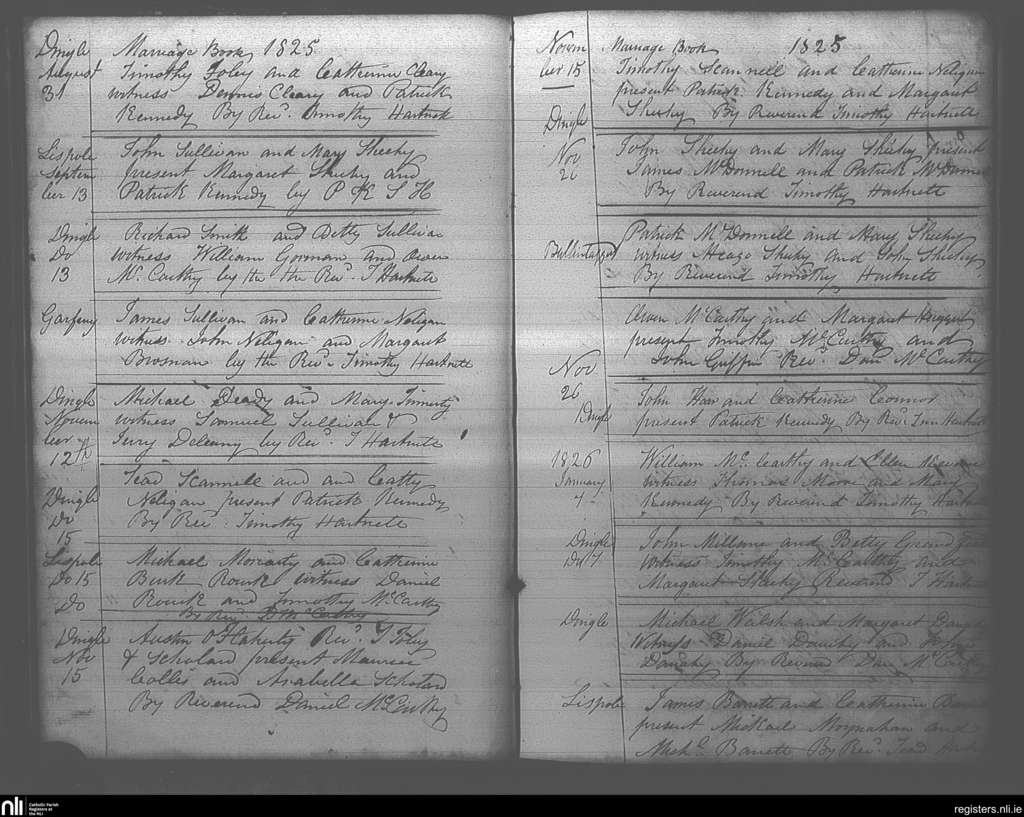 Dingle Marriage Book 1825
August Timothy Foley and Catherine Cleary
31 witness Dennis Cleary and Patrick
Kennedy By Revd. Timothy Hartnett
Lispole John Sullivan and Mary Sheehy
Septem present Margaret Sheehy and
ber 13 Patrick Kennedy by P K T H
Dingle Richard Smith and Betty Sullivan
Do witness William Gorman and Owen
13 Mc Carthy by the the Revd. T Hartnete
Garfeny James Sullivan and Catherine Neligan
witness John Neligan and Margaret
Brosnan by the Revd. Timothy Hartnete
Dingle Michael Deady and Mary
Novem witness Sullivan &
ber Jerry Deleany by Revd. T Hartnete
12th
Tead Scannell and and Catty
Dingle Neligan present Patrick Kennedy
Do By Revd. Timothy Hartnett
15
Lispole Michael Moriarty and Catherine
Do 15 Burk Rourk witness Daniel
Do Rourk and Timothy McCarthy
By Revd. D Mc Carthy
Dingle Austin O Flaherty Revd. T Foley
Nov & Scholard present Maurice
15 Collis and Arabella Scholard
By Reverend Daniel McCarthy
Novem Marriage Book 1825
ber 15 Timothy Scannell and Catherine Neligan
present Patrick Kennedy and Margaret
Sheehy By Reverend Timothy Hartnett
Dingle
Nov John Sheehy and Mary Sheehy present
26 James McDonnell and Patrick McDonnel
By Reverend Timothy Hartnett
Patrick McDonnell and Mary Sheehy
witness Sheehy and John Sheehy
By Reverend Timothy Hartnett
Owen McCarthy and Margaret
present Timothy McCarthy and
John Griffin Revd. Dan McCarthy
Nov
26 John Haw and Catherine Connor
Dingle present Patrick Kennedy By Revd. Tim Hartnett
1826 William Mc Carthy and Ellen
January witness Thomas Moore and Mary
4 Kennedy By Reverend Timothy
Dingle John Millane and Betty
Do 7 witness Timothy McCarthy and
Margaret Sheehy Reverend T
Dingle Michael Walsh and Margaret
Witness Daniel and
By Reverend Dan
Lispole James Barrett and Catherine
present Michael Moynahan and
Michl. Barrett By Revd. Tead
nli
Catholic Parish
Registers at
the NLI
registers.nli.ie